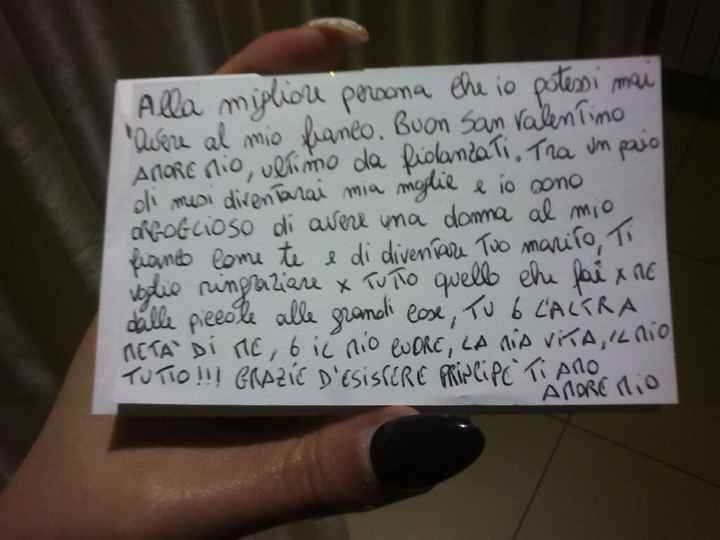 Alla migliore persona che io potessi mai
avere al mio fianco. Buon San Valentino
AMORE MIO, ultimo da fidanzati. Tra un paio
di mesi diventarai mia moglie e io sono
ORGOGLIOSO di avere una donna al mio
fianco come te e di diventare tuo marito, Ti
voglio ringraziare x TUTTO quello che fai x ME
dalle piccole alle grandi cose, TU 6 L'ALTRA
METÀ DI ME, 6 IL MIO CUORE, LA MIA VITA, IL MIO
TUTTO!!! GRAZIE D'ESISTERE PRINCIPE' TI AMO
AMORE MIO